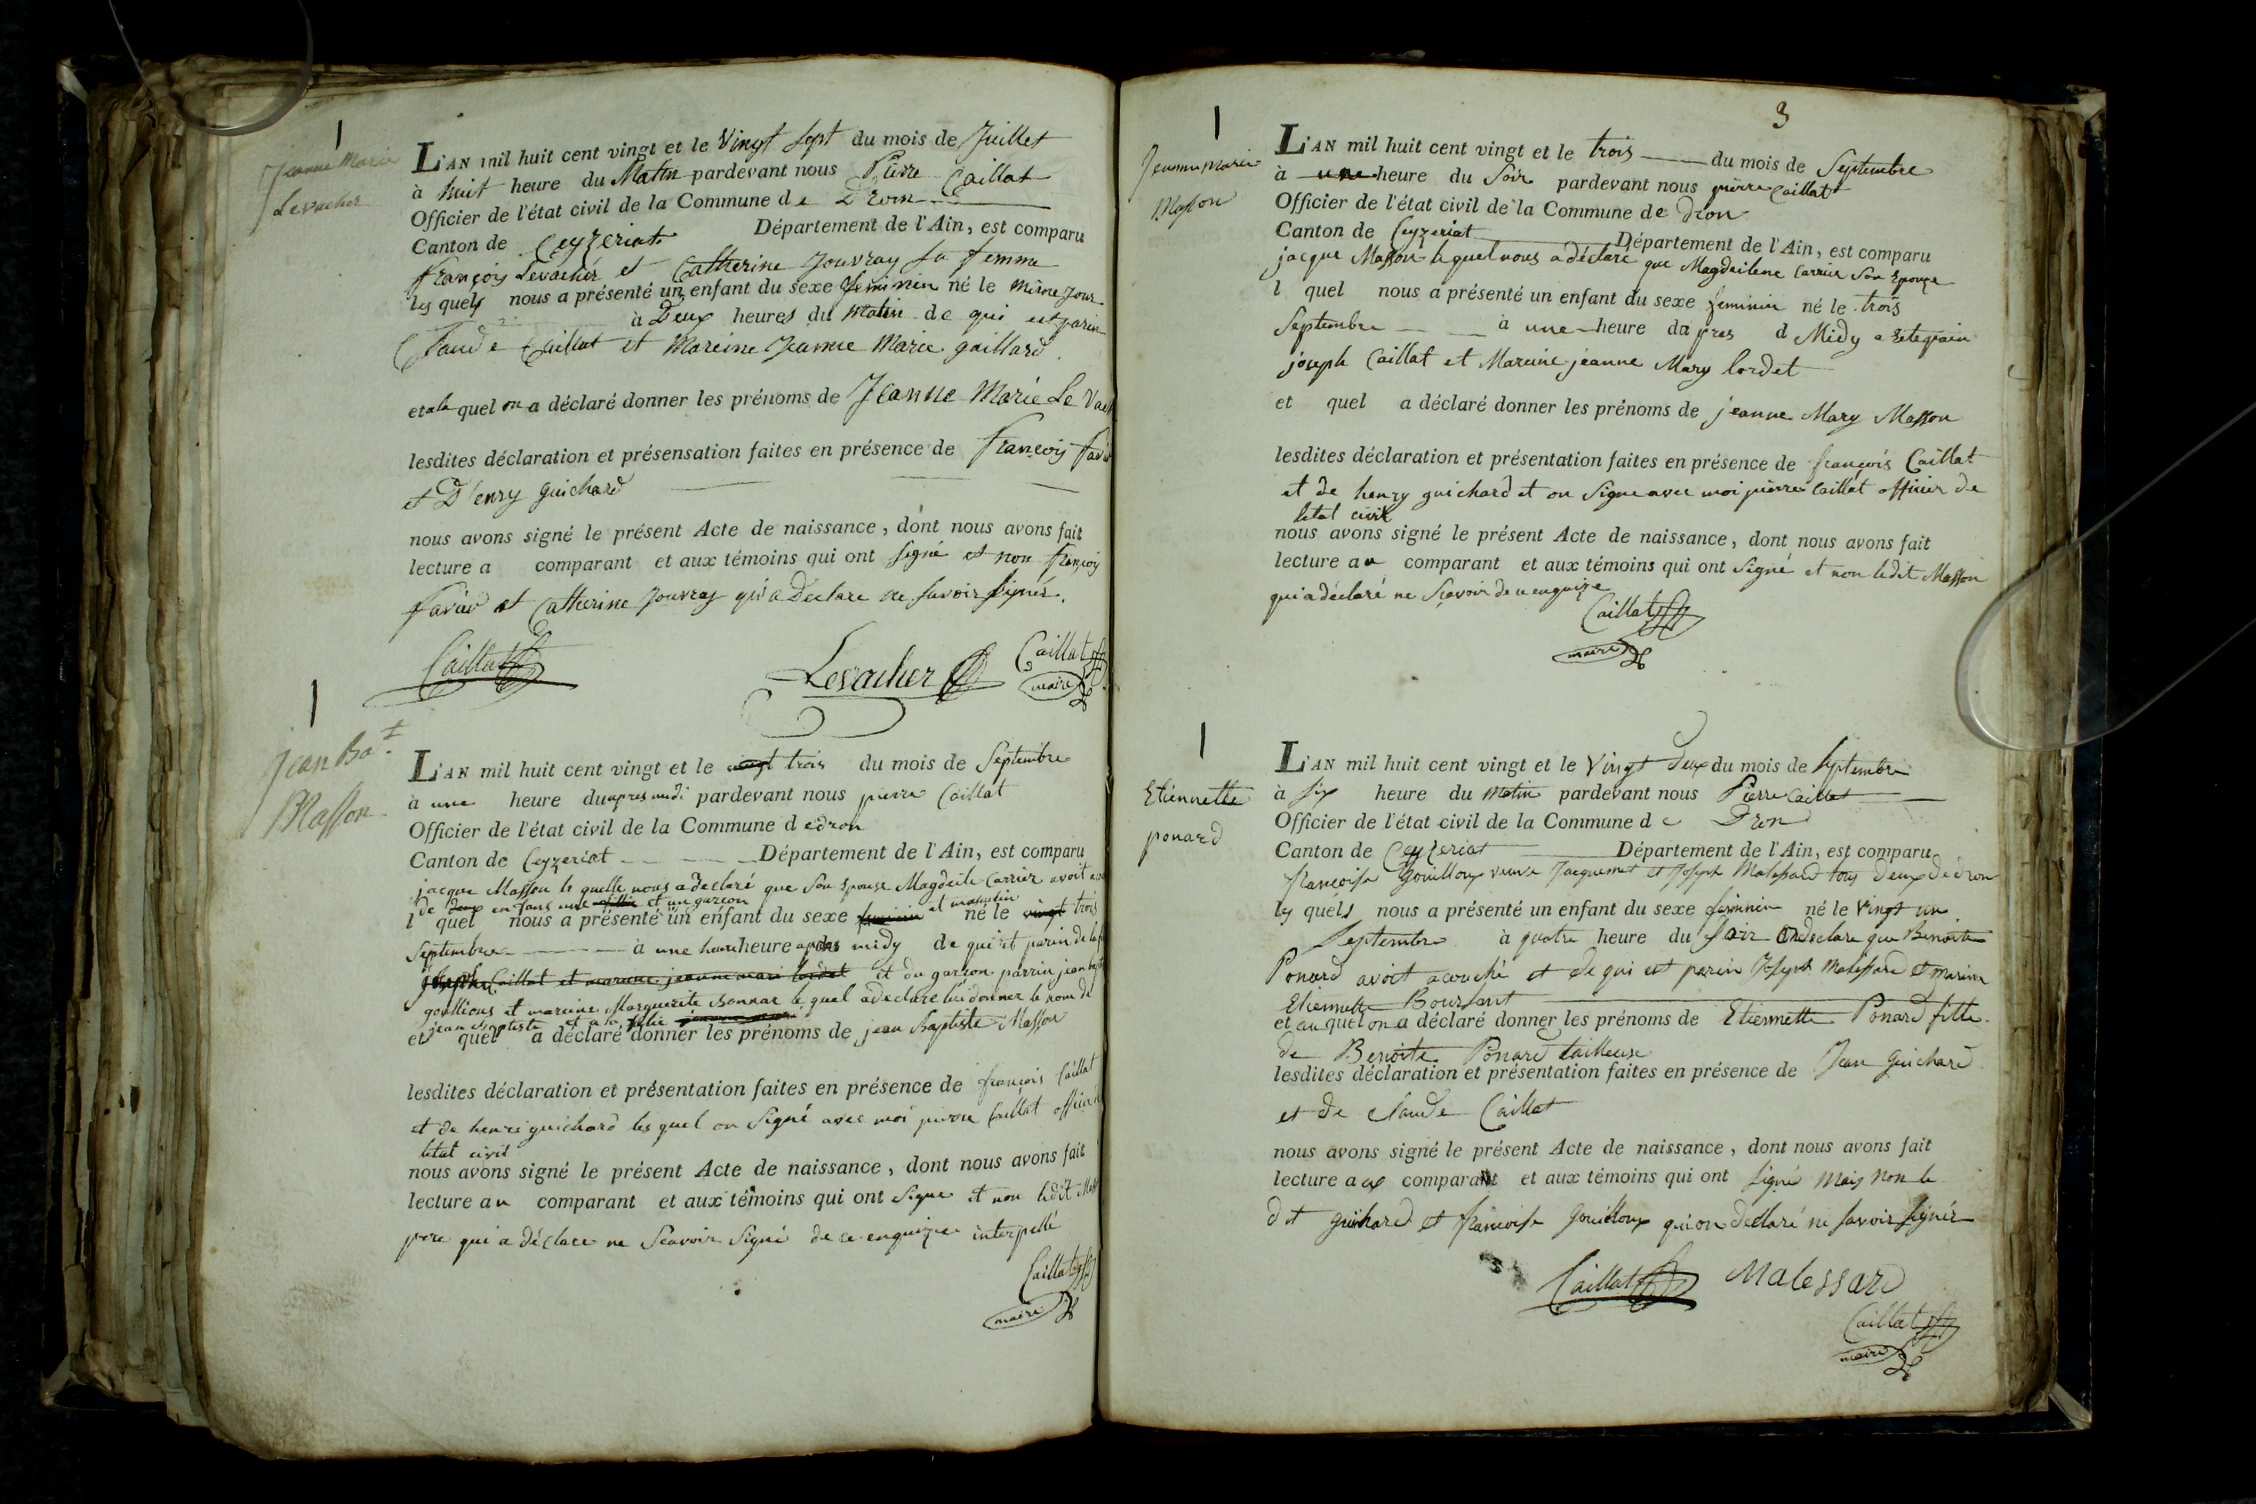 Jeanne Marie
Levacher
L'AN mil huit cent vingt et le Vingt Sept du mois de Juillet
à huit heure du Matin pardevant nous Pierre Caillat
Officier de l'état civil de la Commune de Dron
Canton de Ceyzeriat Département de l'Ain, est comparu
François Levacher et Catherine Jouvray sa femme
lesquels nous a présenté un enfant du sexe feminin né le même jour
à Deux heures du Matin de qui est parin
Claude Caillat et Mareine Jeanne Marie gaillard
et a la quel on a déclaré donner les prénoms de Jeanne Marie Le Vach
lesdites déclaration et présensation faites en présence de François
et D'enry guichard
nous avons signé le présent Acte de naissance, dont nous avons fait
lecture a comparant et aux témoins qui ont signé et non François
et Catherine Jouvray qu'a Declare ne savoir signér.
Caillat
Levacher
Caillat
maire
Jean Bat
Masson
L'AN mil huit cent vingt et le vingt trois du mois de Septembre
à une heure du apres midi pardevant nous pierre Caillat
Officier de l'état civil de la Commune de dron
Canton de Ceyzeriat Département de l'Ain, est comparu
jacque Masson le quelle nous a declaré que son spouse Magdeile Carrier avoit
de deux enfans une fillie et un garçon
l quel nous a présenté un enfant du sexe feminin et masculin né le vingt trois
Septembre à une heure heure apres midy de qui et parin de la
joseph Caillat et mareine jeanne mari lordet et du garçon parrin jean
goullious et mareine Marguerite Bonnar le quel a declare lui donner le nom de
jean Baptiste et a la fillie
et quel a déclaré donner les prénoms de jean Baptiste Masson
lesdites déclaration et présentation faites en présence de françois Caillat
et de henri guichard les quel on Signé avec moi pierre Caillat officier d
letat civil
nous avons signé le présent Acte de naissance, dont nous avons fait
lecture au comparant et aux témoins qui ont signe et non ledit
pere qui a déclare ne Scavoir Signé de ce enquize interpellé
Caillat
maire
3
Jeanne Marie
Masson
L'AN mil huit cent vingt et le trois du mois de Septembre
à une heure du Soir pardevant nous pierre Caillat
Officier de l'état civil de la Commune de dron
Canton de Ceyzeriat Département de l'Ain, est comparu
jacque Masson le quel nous a déclaré que Magdeilene Carrier son Epouze
l quel nous a présenté un enfant du sexe feminin né le trois
Septembre à une heure da pres d Midy
joseph Caillat et Mareine jeanne Mary lordet
et quel a déclaré donner les prénoms de jeanne Mary Masson
lesdites déclaration et présentation faites en présence de françois Caillat
et de henry guichard et on Signe avec moi pierre Caillat officier de
letat civil
nous avons signé le présent Acte de naissance, dont nous avons fait
lecture au comparant et aux témoins qui ont Signé et non ledit Masson
qui a déclaré ne Sçavoir de ce enquize
Caillat
maire
Etiennette
ponard
L'AN mil huit cent vingt et le Vingt deux du mois de Septembre
à Six heure du Matin pardevant nous Pierre Caillat
Officier de l'état civil de la Commune de Dron
Canton de Ceyzeriat Département de l'Ain, est comparu
françoise Gouilloux veuve Jacquemet et Joseph Malessard tous deux de dron
lesquéls nous a présenté un enfant du sexe feminin né le Vingt un
Septembre à quatre heure du Soir on declare que Benoite
Ponard avoit acouché et de qui est parin Joseph Malessard et marine
Etiennette
et au quel on a déclaré donner les prénoms de Etiennette Ponard fille
de Benoite Ponard tailleuse
lesdites déclaration et présentation faites en présence de Jean Guichard
et de Claude Caillat
nous avons signé le présent Acte de naissance, dont nous avons fait
lecture aux comparant et aux témoins qui ont signé Mais non le
dit guichard et françoise Gouilloux qui on declaré ne savoir signér
Caillat
Malessard
Caillat
maire